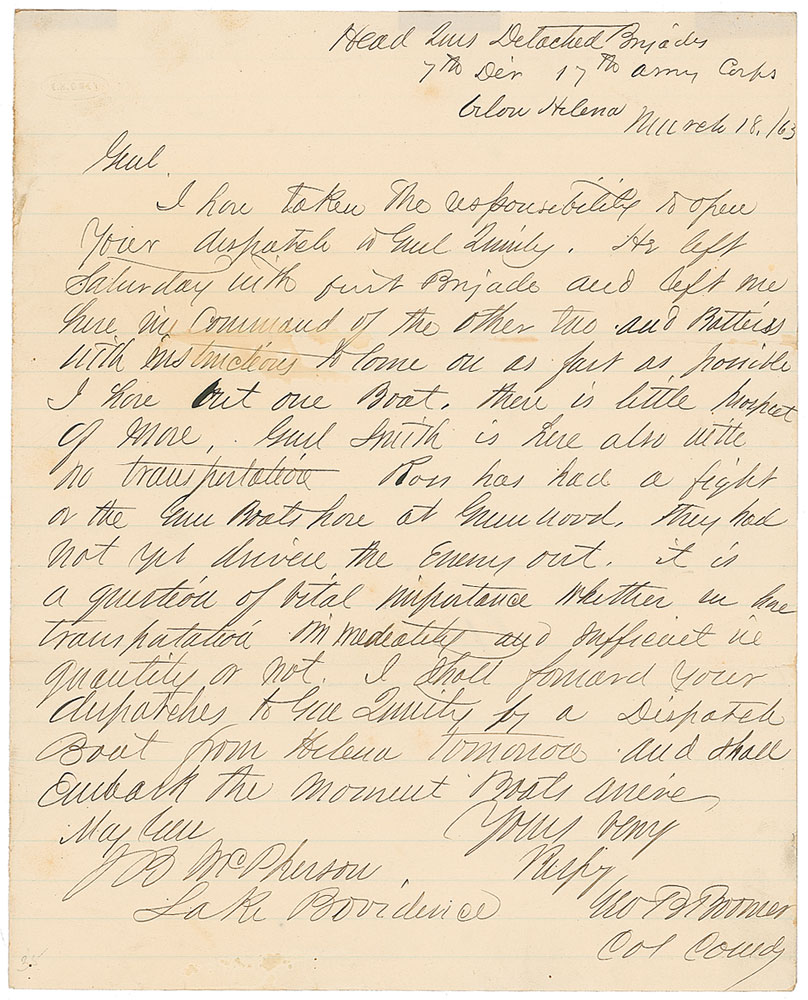 Head Qurs Detached Brigades
7th Div 17th army Corps
below Helena March 18. /63
Genl.
I have taken the responsibility to open
Your despatch to Genl Quinby. He left
Saturday with first Brigade and left me
here in Command of the other two and Batteries
with instructions to come on as fast as possible
I have but one Boat. there is little prospect
of more. Genl Smith is here also with
no transportation Ross has had a fight
or the Gun Boats have at Greenwood. they had
not yet driven the Enemy out. it is
a question of vital importance whether we have
transportation immediately and sufficient in
quantity or not. I shall forward your
dispatches to Gen Quinby by a Dispatch
Boat from Helena tomorrow and shall
Embark the moment Boats arrive
Maj Genl Yours very
J B McPherson Respy
Lake Providence Geo B Boomer
Col Comdg